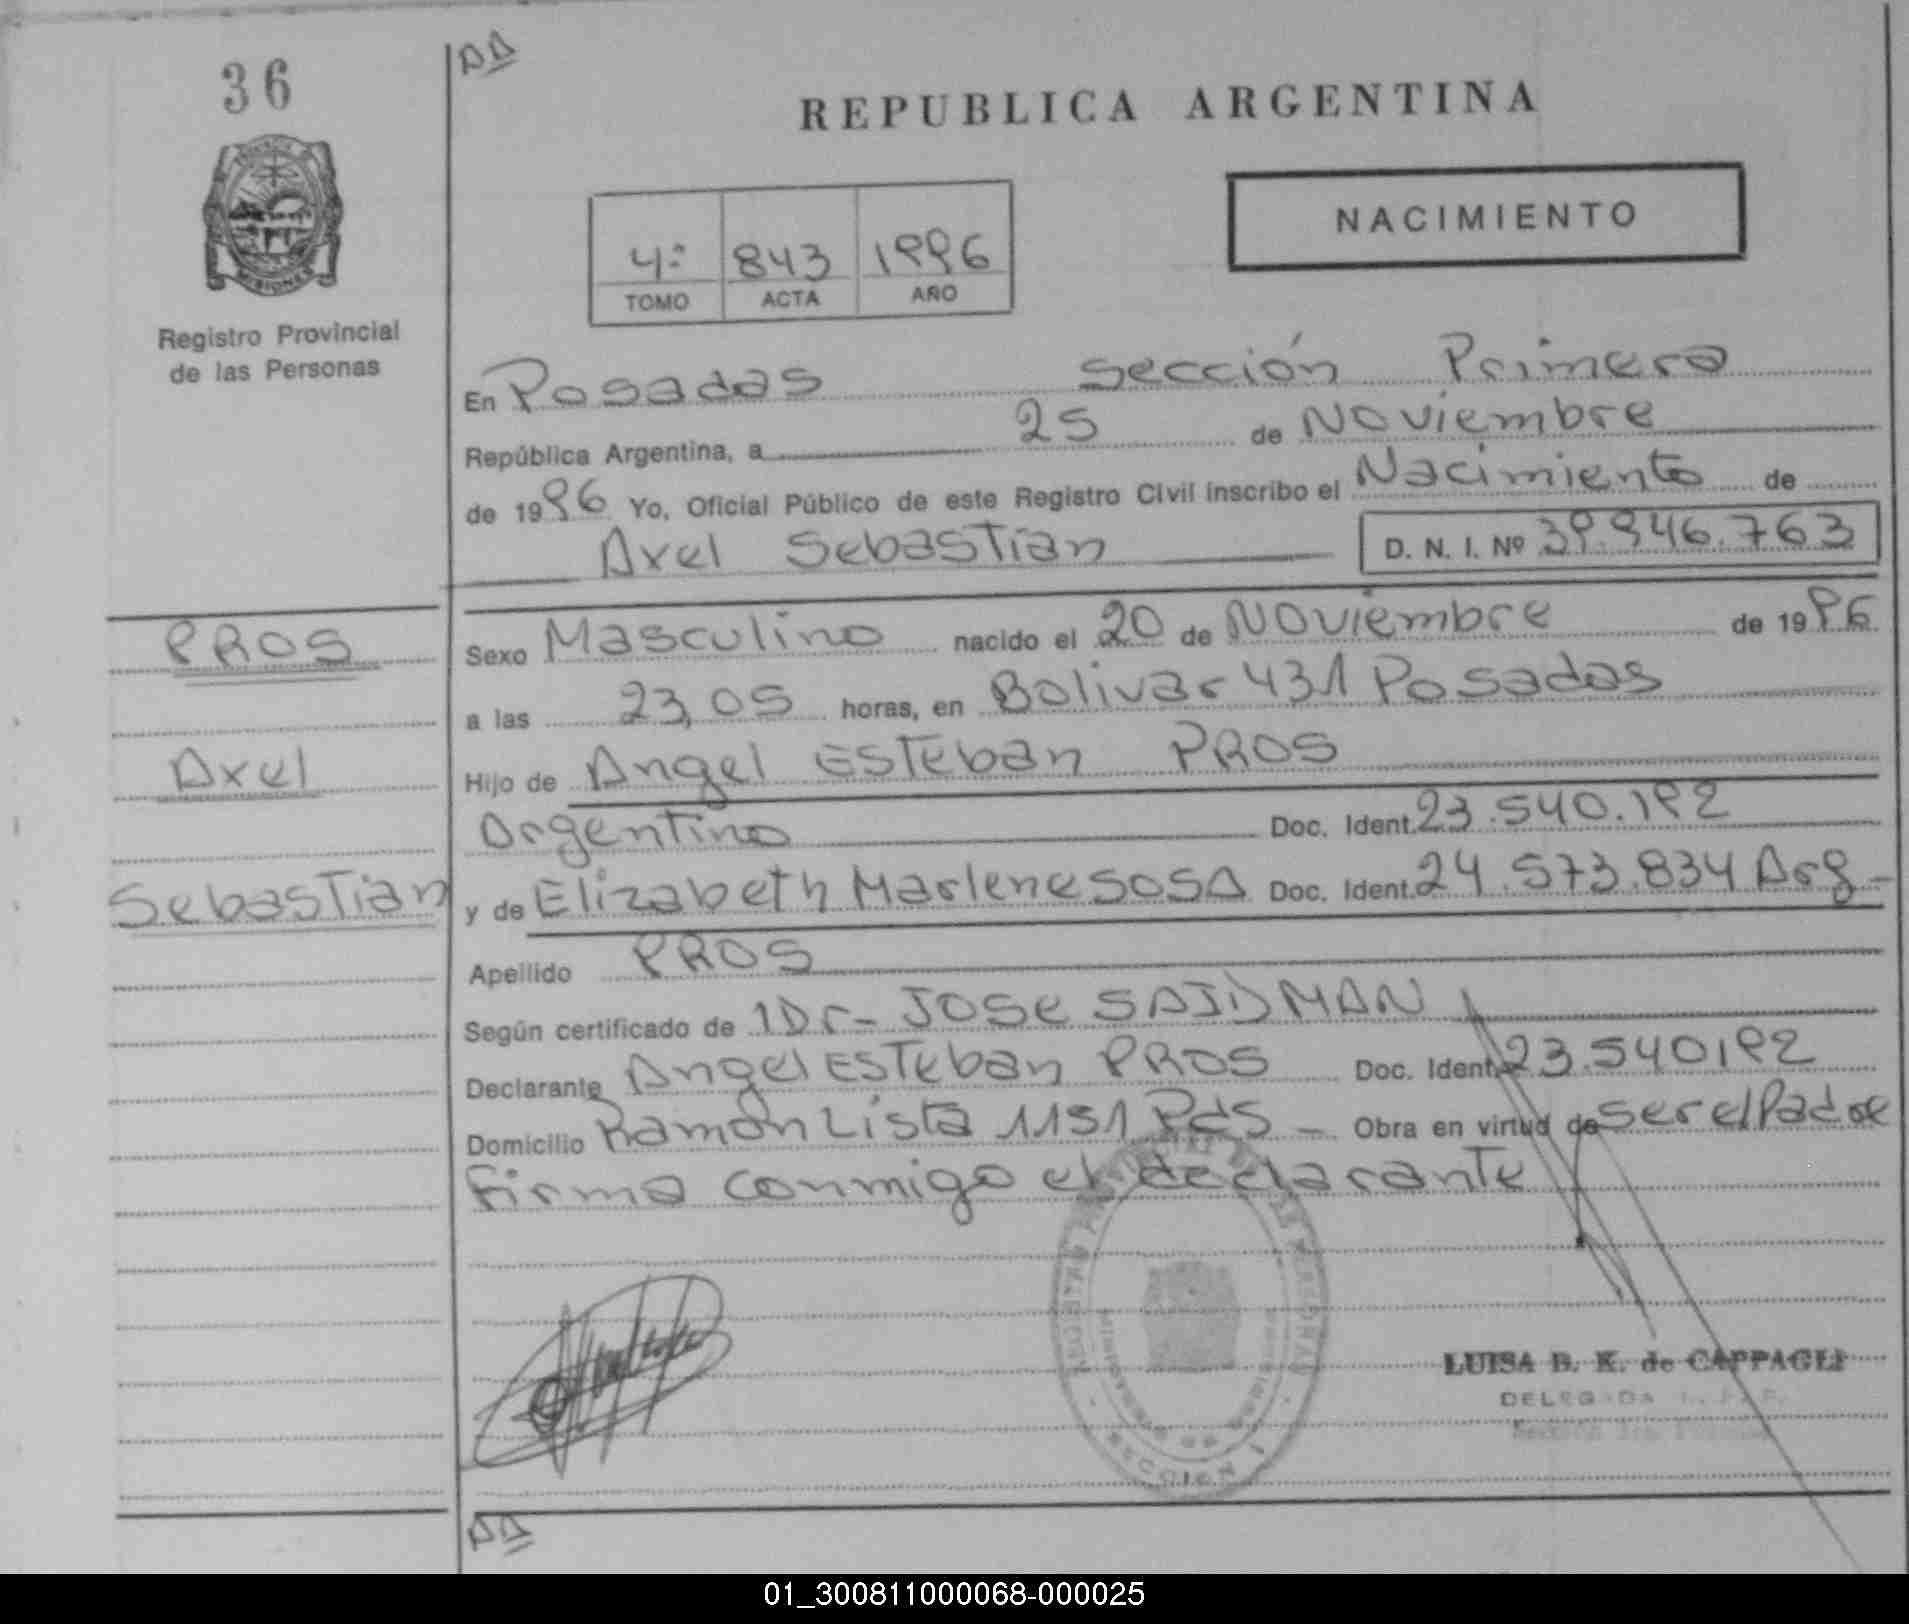 36
DD
REPUBLICA ARGENTINA
MISIONES
Registro Provincial
de las Personas
4º 843 1996
TOMO ACTA AÑO
NACIMIENTO
En Posadas sección Primera
República Argentina, a 25 de Noviembre
de 1996 Yo, Oficial Público de este Registro Civil inscribo el Nacimiento de
Axel Sebastián D. N. I. Nº 39.946.763
PROS
Axel
Sebastián
Sexo Masculino nacido el 20 de Noviembre de 1996
a las 23,05 horas, en Bolivar 431 Posadas
Hijo de Angel Esteban PROS
Argentino Doc. Ident. 23.540.192
y de Elizabeth Marlene SOSA Doc. Ident. 24.573.834 Arg-
Apellido PROS
Según certificado de Dr- JOSE SAIDMAN
Declarante Angel Esteban PROS Doc. Ident. 23.540192
Domicilio Ramón Lista 1151 Pdas - Obra en virtud de ser el Padre
Firma conmigo el declarante
LUISA B. K. de CAPPAGLI
DELEGADA
SECCION 1
DD
01_300811000068-000025